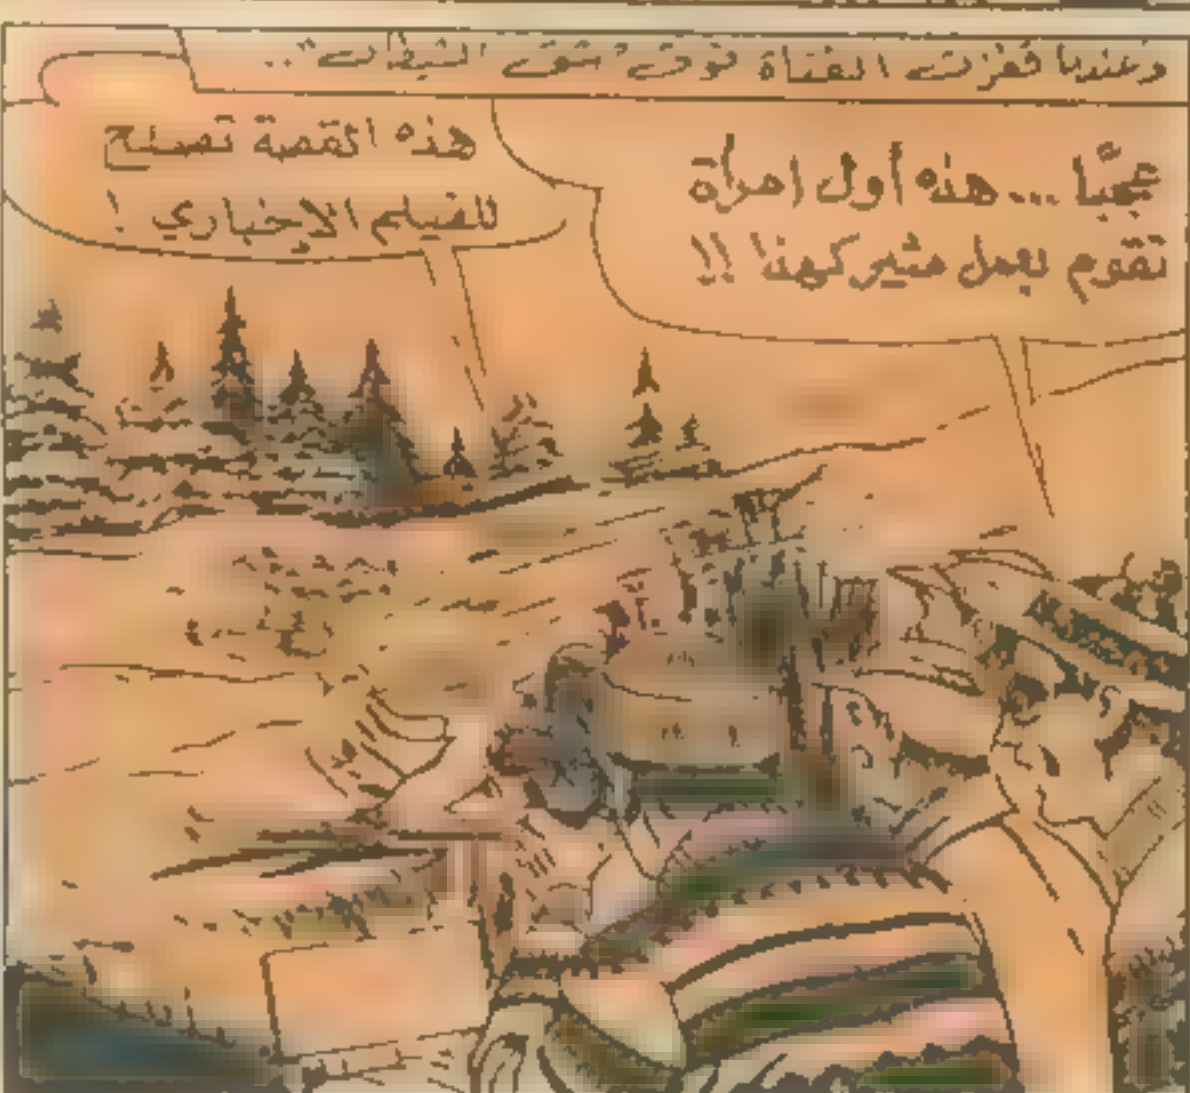 وعندما قفزت الفتاة فوق شق الشيطان ..
عجبًا ... هذه أول امرأة
تقوم بعمل مثير كهذا !!
هذه القصة تصلح
للفيلم الإخباري !